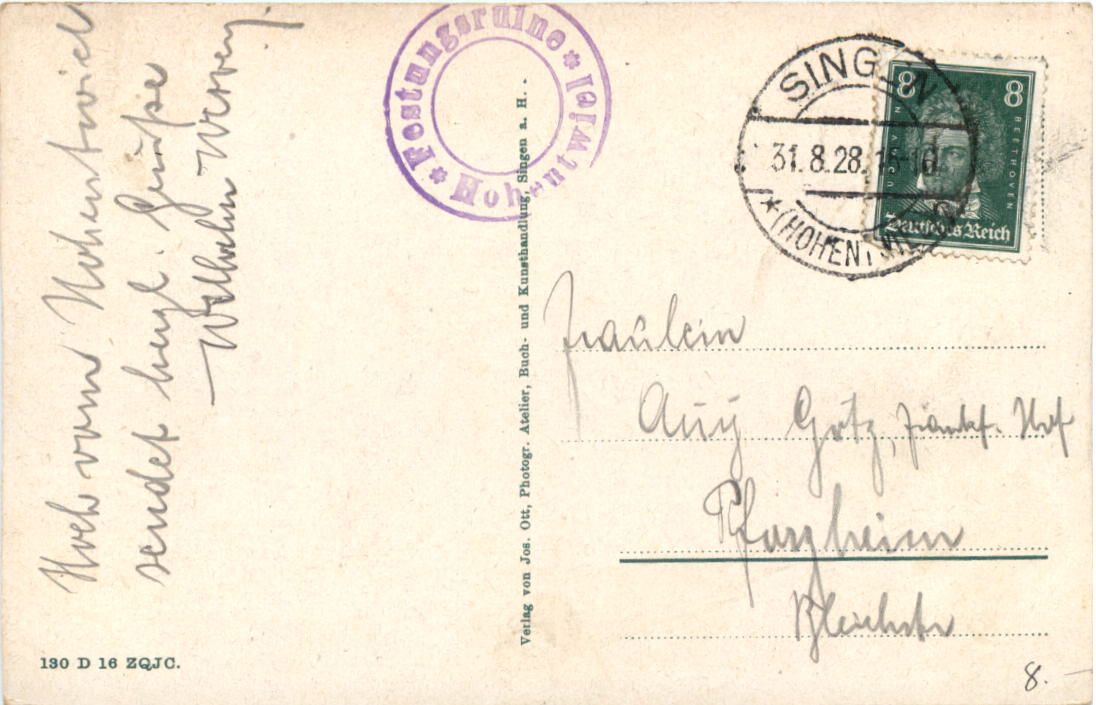 Hoch vom Hohentwiel
sendet herzl. Grüsse
Wilhelm
* Festungsruine * Hohentwiel
Verlag von Jos. Ott, Photogr. Atelier, Buch- und Kunsthandlung, Singen a. H.
SINGEN
31.8.28.15-16
* (HOHENTWIEL)
8 8
BEETHOVEN
Deutsches Reich
Fräulein
Götz, Frankf. Hof
Pforzheim
Bleichstr
130 D 16 ZQJC.
8.-